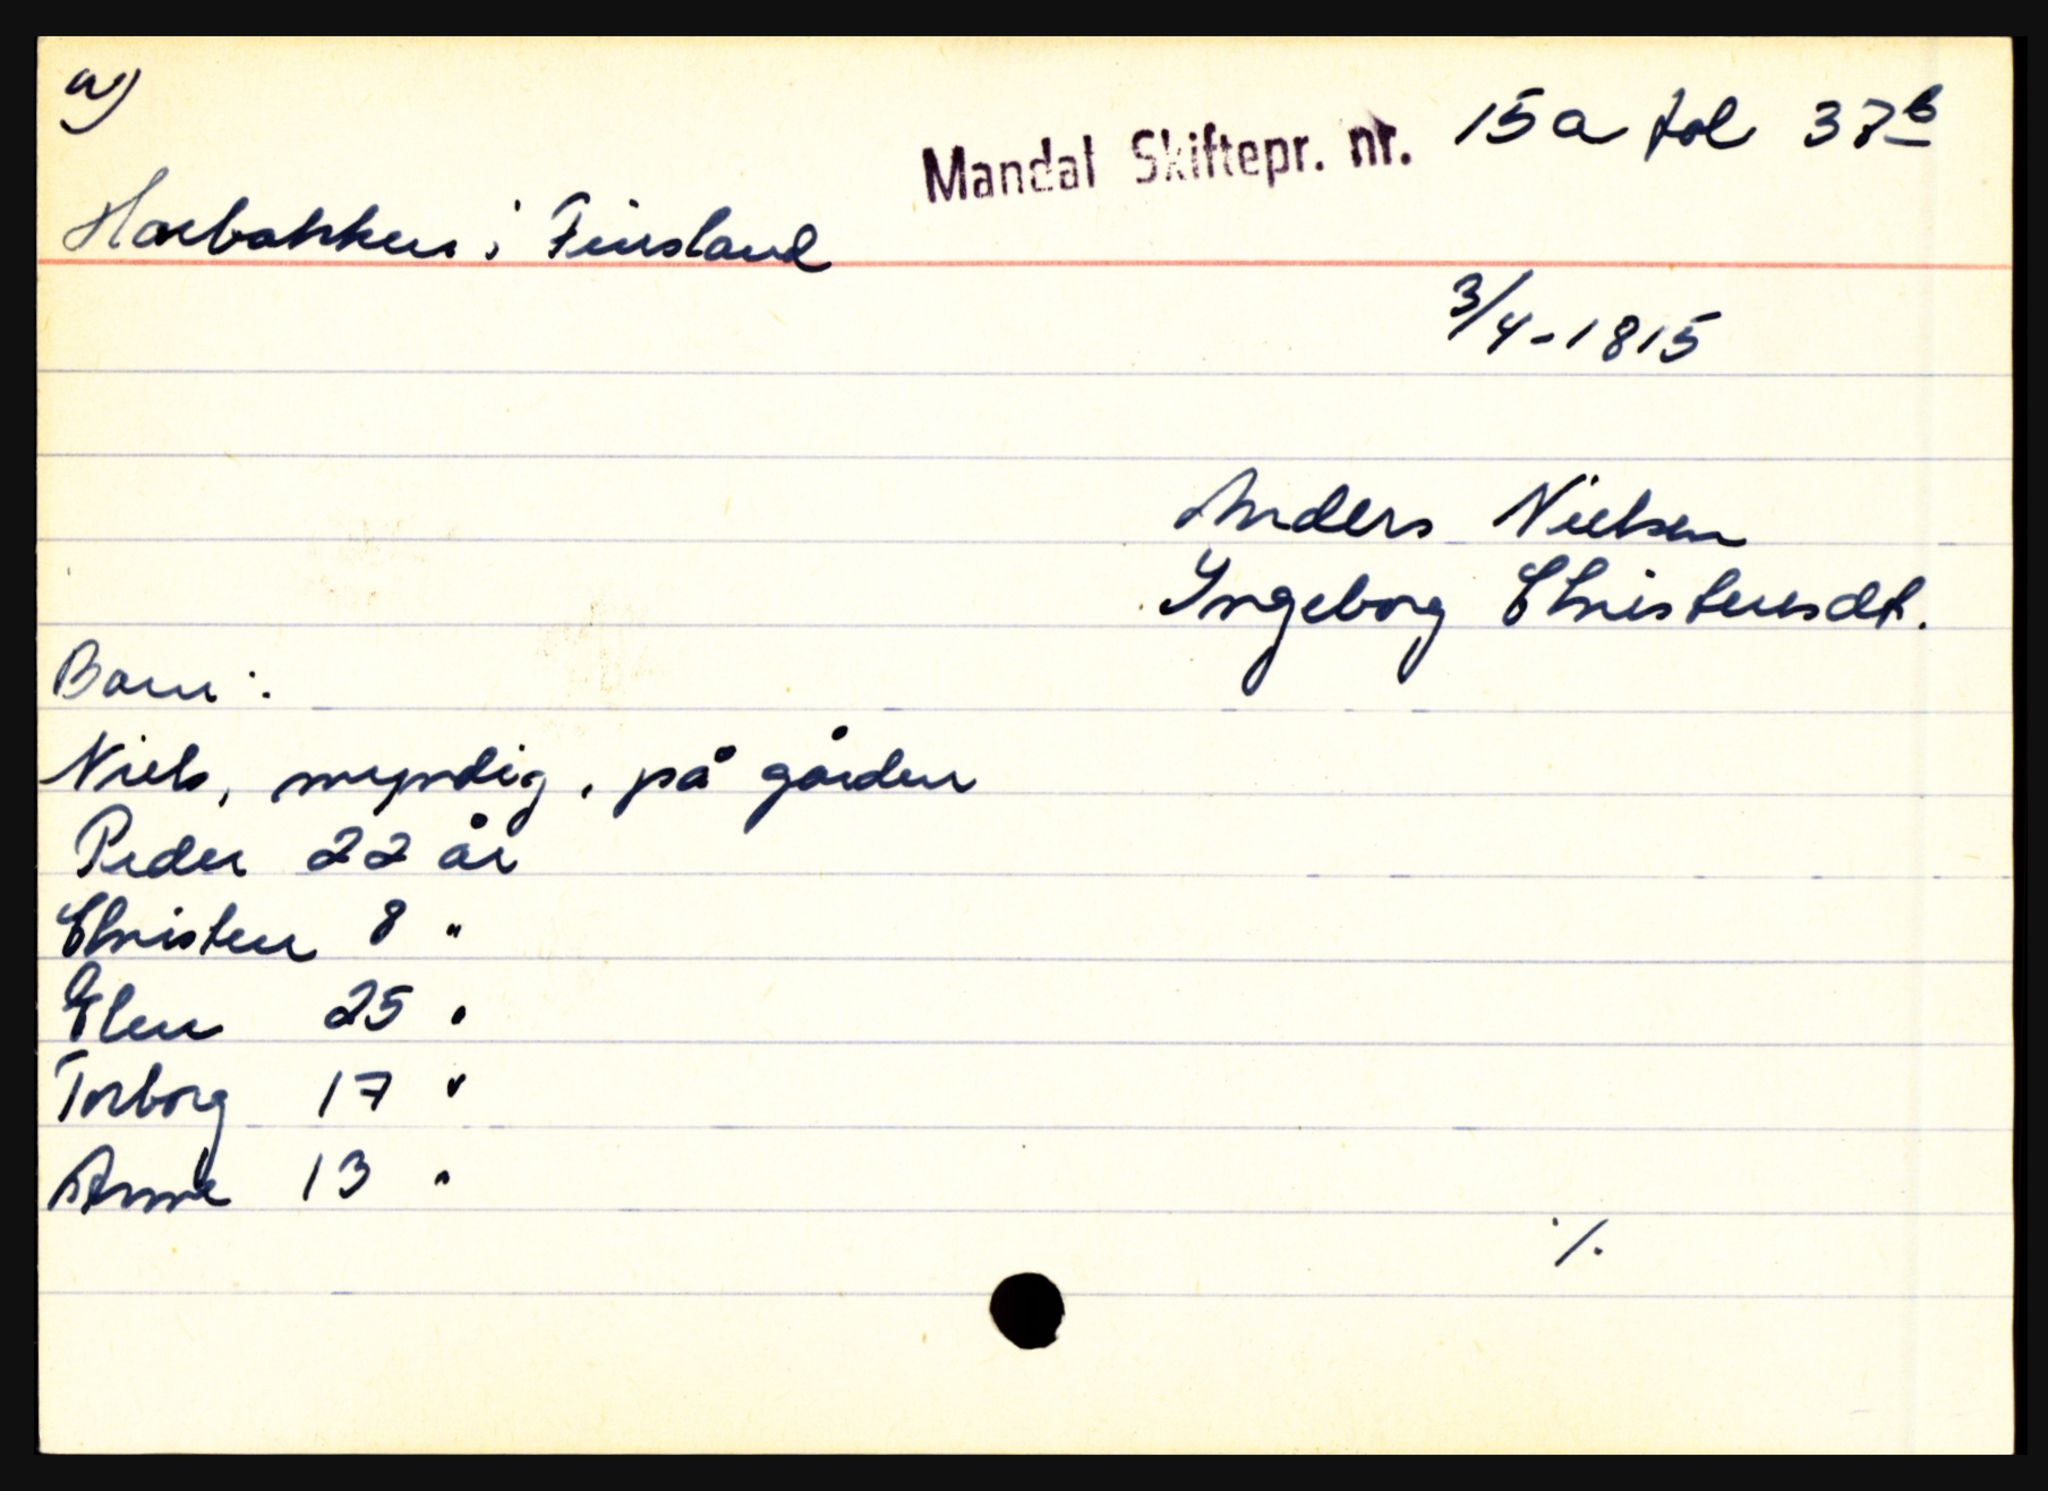 a)
Mandal Skiftepr. nr. 15a fol 37b
Haabakken i Finsland
3/4-1815
Anders Nielsen
Ingeborg Christensdt.
Barn:
Niels, myndig, på gården
Peder 22 år
Christen 8 "
Elen 25 "
Torborg 17 "
Anne 13 "
./.